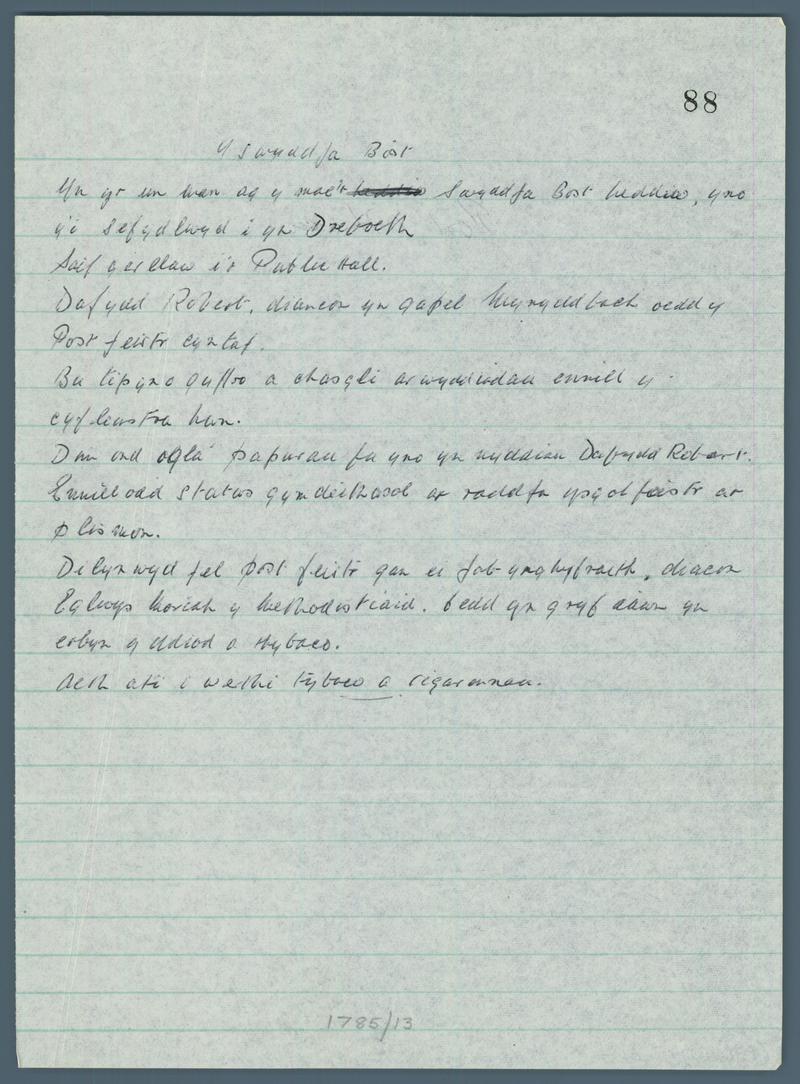 88
Y Swyddfa Bost
Yn yr un man ag y mae'r heddiw Swyddfa Bost heddiw, yno
y'i sefydlwyd i yn Dreboeth
Saif gerllaw i'r Public Hall.
Dafydd Robert, diacon yn gapel Mynyddbach oedd y
Post feistr cyntaf.
Bu tipyn o gyffro a chasgli arwyddiodau ennill y
cyfleustra hwn.
Dim ond ogla papurau fu yno yn nyddiau Dafydd Robert.
Ennillodd status gymdeithasol ar raddfa ysgolfeistr ar
plismon.
Dilynwyd fel post feistr gan ei fab-ynghyfraith, diacon
Eglwys Moriah y Methodistiaid. Oedd yn gryf iawn yn
erbyn y ddiod a thybaco.
Aeth ati i werthi tybaco a cigarennau.
1785/13